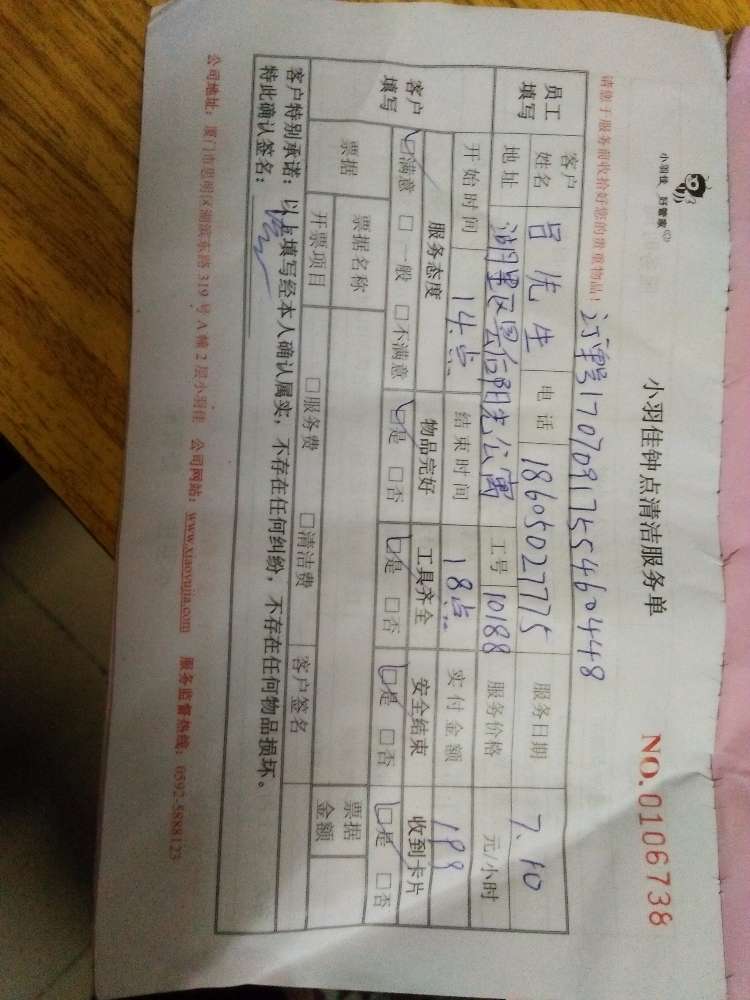 小羽佳 好管家
小羽佳钟点清洁服务单
NO.0106738
请您于服务前收拾好您的贵重物品!
订单号1707091755460448
员工填写
客户姓名 吕先生 电话 18605027775 服务日期 7.10
地址 湖里区县后阳光公寓 工号 10188 服务价格 元/小时
开始时间 14点 结束时间 18点 实付金额 199
客户填写
服务态度 物品完好 工具齐全 安全结束 收到卡片
☑满意 □一般 □不满意 ☑是 □否 ☑是 □否 ☑是 □否 ☑是 □否
票据 票据名称 票据金额
开票项目 □服务费 □清洁费 客户签名
客户特别承诺：以上填写经本人确认属实，不存在任何纠纷，不存在任何物品损坏。
特此确认签名：
公司地址：厦门市思明区湖滨东路319号A幢2层小羽佳 公司网站：www.xiaoyujia.com 服务监督热线：0592-5888123